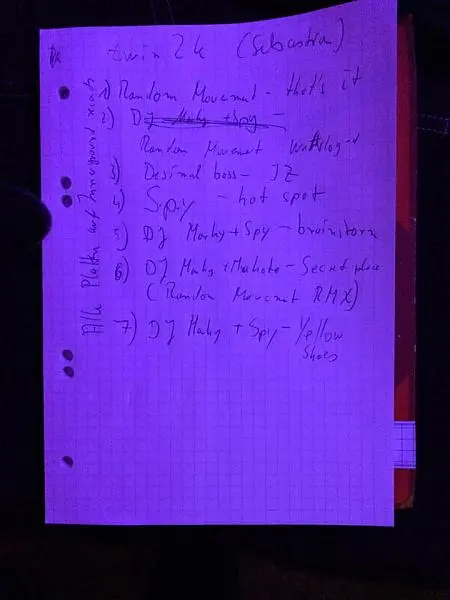 twin 24 (Sebastian)
1) Random Movement - that's it
2) DJ Marky + Spy -
Random Movement
3) Desimal bass - JZ
4) S.p.y - hot spot
5) DJ Marky + Spy - brainstorm
6) DJ Marky + Makoto - Secret place
(Random Movement RMX)
7) DJ Marky + Spy - Yellow
Shoes
Alle Platten auf Innerground records